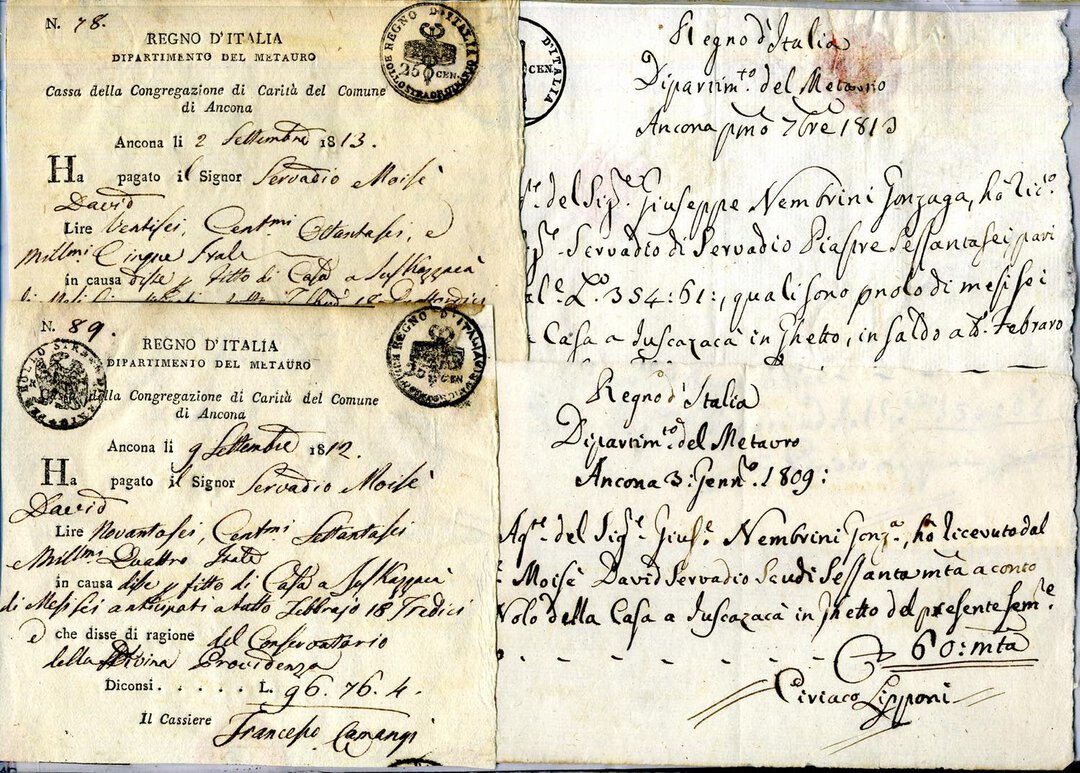 N. 78.
REGNO D'ITALIA
DIPARTIMENTO DEL METAURO
Cassa della Congregazione di Carità del Comune
di Ancona
Ancona li 2 Settembre 1813.
Ha pagato il Signor Servadio Moisè
David
Lire Ventisei, Centmi Ottantasei, e
Millmi Cinque Itale
in causa disse p fitto di Casa a
REGNO D'ITALIA
250 CEN.
BOLLO STRAORDINARIO
N. 89.
REGNO D'ITALIA
DIPARTIMENTO DEL METAURO
della Congregazione di Carità del Comune
di Ancona
Ancona li 9 Settembre 1812.
Ha pagato il Signor Servadio Moisè
David
Lire Novantasei, Centmi Settantasei
Millmi Quattro Itale
in causa disse p fitto di Casa a
di Mesi sei anticipati a tutto Febbrajo 18 Tredici
e che disse di ragione del Conservatorio
della Divina Providenza
Diconsi . . . . . L. 96. 76. 4.
Il Cassiere
Francesco Camangi
REGNO D'ITALIA
CEN
D'ITALIA
CEN.
Regno d'Italia
Dipartimto del Metauro
Ancona pmo 7bre 1813
del Sigre Giuseppe Nembrini Gonzaga, hò ricto
Servadio di Servadio Piastre Sessantasei pari
354:61:, quali sono p nolo di mesi sei
Casa a Iuscazacà in Ghetto, in saldo a Febraro
Regno d'Italia
Dipartimto del Metauro
Ancona 3: Gennro 1809:
Aqte del Sige Giuse Nembrini Gonza, hò ricevuto dal
Moisè David Servadio Scudi Sessanta mta a conto
Nolo della Casa a Iuscazacà in Ghetto del presente seme
60: mta
Ciriaco Lipponi